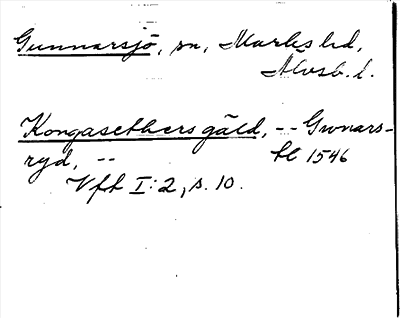 Gunnarsjö, sn, Marks hd,
Älvsb. l.
Kongasethersgäld, -- Gwnars-
ryd, -- bl 1546
Vft I:2, s. 10.